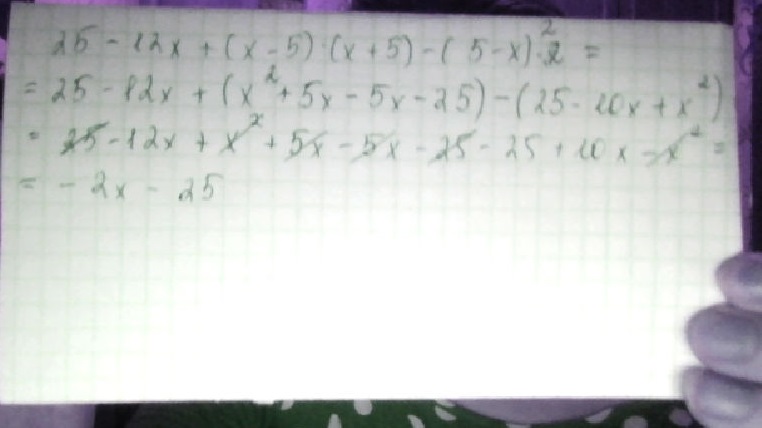 25 - 12x + (x - 5)·(x + 5) - (5 - x)² =
= 25 - 12x + (x² + 5x - 5x - 25) - (25 - 10x + x²)
= 25 - 12x + x² + 5x - 5x - 25 - 25 + 10x - x² =
= - 2x - 25